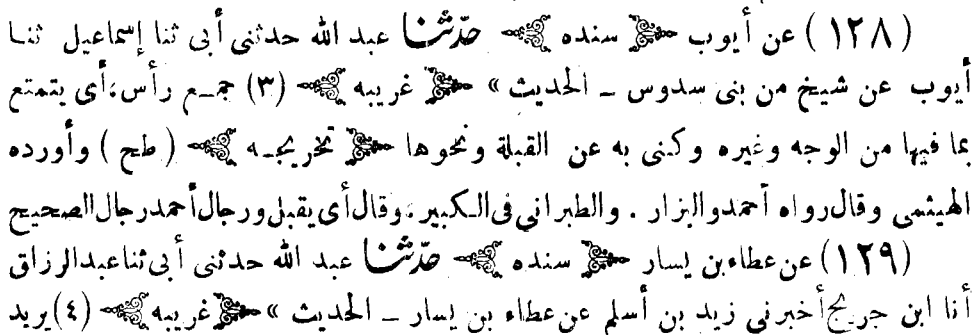 (١٢٨) عن أيوب ﴿ سنده ﴾ حدّثنا عبد الله حدثنى أبى ثنا إسماعيل ثنا
أيوب عن شيخ من بنى سدوس ـ الحديث » ﴿ غريبه ﴾ (٣) جمع رأس، أى يتمتع
بما فيها من الوجه وغيره وكنى به عن القبلة ونحوها ﴿ تخريجه ﴾ (طح) وأورده
الهيثمى وقال رواه أحمد والبزار . والطبرانى فى الكبير، وقال أى يقبل ورجال أحمد رجال الصحيح
(١٢٩) عن عطاء بن يسار ﴿ سنده ﴾ حدّثنا عبد الله حدثنى أبى ثنا عبد الرزاق
أنا ابن جريج أخبرنى زيد بن أسلم عن عطاء بن يسار ـ الحديث » ﴿ غريبه ﴾ (٤) يريد